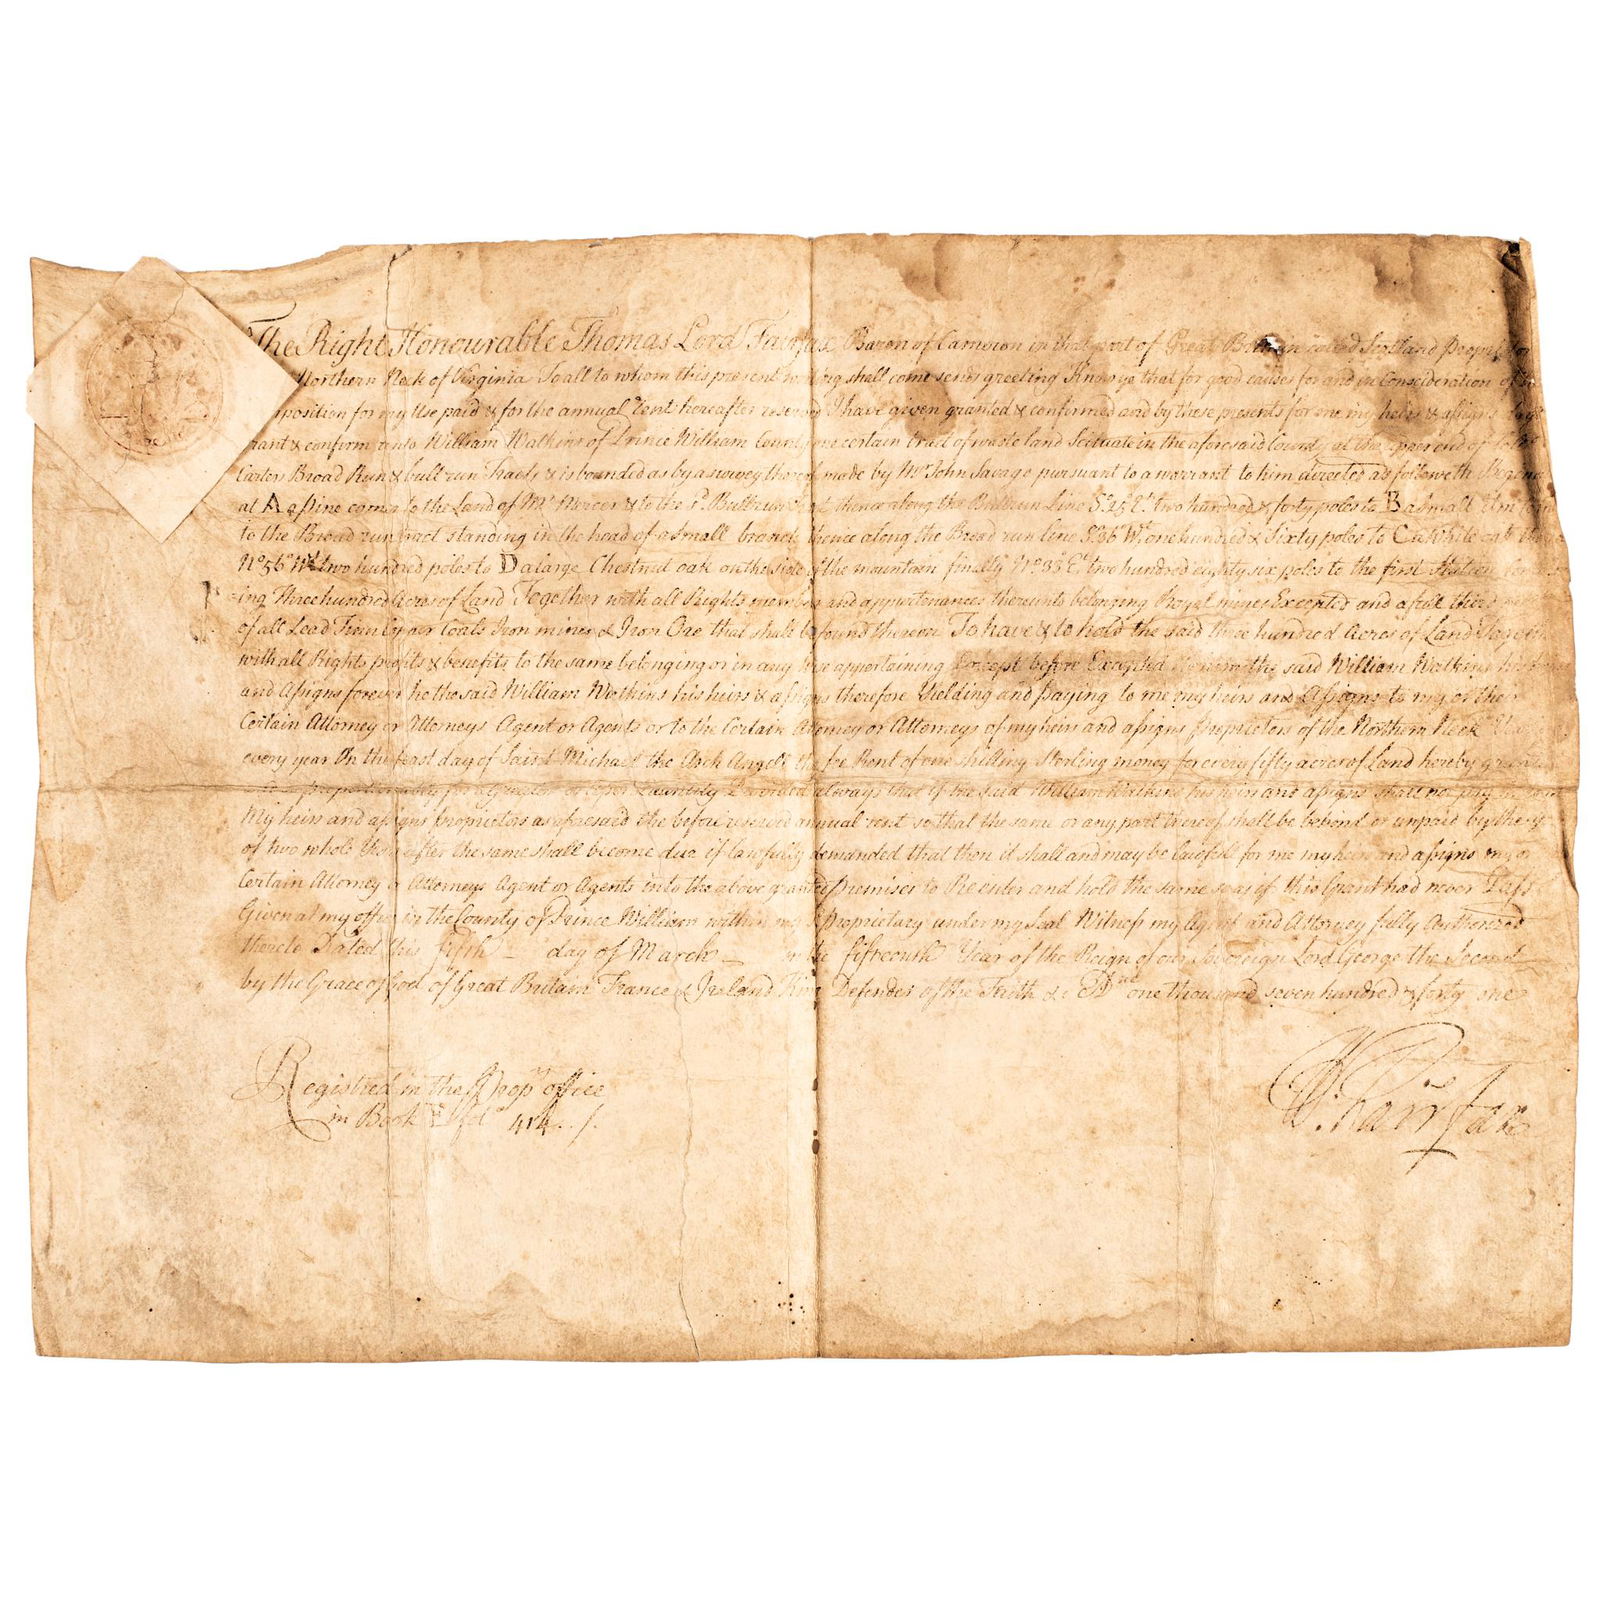 The Right Honourable Thomas Lord Fairfax Baron of Cameron in that part of Great Britain called Scotland Proprietor
Northern Neck of Virginia To all to whom this present writing shall come sends greeting Know ye that for good causes for and in Consideration of
mposition for my Use paid & for the annual Rent hereafter reserved I have given granted & confirmed and by these presents for me my heirs & assigns
rant & confirm unto William Watkins of Prince William County one certain tract of waste land Scituate in the aforesaid County at the upper end of
Carters Broad Run & bull run Tract, & is bounded as by a survey thereof made by Mr John Savage pursuant to a warrant to him directed as followeth
at A a pine corner to the Land of Mr Mercer & to the sd Bullrun thence along the Bullrun Line So 25 Et two hundred & forty poles to B a small Elm
to the Broad run tract standing in the head of a small branch thence along the Broad run line So 36 Wt one hundred & Sixty poles to C a White oak
No 56 Wt two hundred poles to D a large Chestnut oak on the side of the mountain finally No 33 Et two hundred eighty six poles to the first Station
ing Three hundred Acres of Land Together with all Rights members and appurtenances thereunto belonging Royal mines Excepted and a full third
of all Lead Tinn Copper Coals Iron mines & Iron Ore that shall be found thereon To have & to hold the said three hundred Acres of Land Together
with all Rights profits & benefits to the same belonging or in any wise appertaining Except before Excepted the said William Watkins his heirs
and Assigns forever he the said William Watkins his heirs & assigns therefore Yielding and paying to me my heirs and Assigns to my or their
Certain Attorney or Attorneys Agent or Agents or to the Certain Attorney or Attorneys of my heirs and assigns Proprietors of the Northern Neck
every year On the feast day of Saint Michael the Arch Angel the fee Rent of one shilling Sterling money for every fifty acres of Land hereby granted
Provided always that if the said William Watkins his heirs and assigns shall not pay
My heirs and assigns proprietors as aforesaid the before reserved annual rent so that the same or any part thereof shall be behind or unpaid by the
of two whole Years after the same shall become due if lawfully demanded that then it shall and may be lawfull for me my heirs and assigns my or
Certain Attorney or Attorneys Agent or Agents into the above granted premises to Reenter and hold the same so as if this Grant had never Past
Given at my office in the County of Prince William within my Proprietary under my seal Witness my Agent and Attorney fully Authorized
thereto Dated this fifth day of March in the fifteenth Year of the Reign of our Sovereign Lord George the Second
by the Grace of God of Great Britain France & Ireland King Defender of the Faith &c one thousand seven hundred & forty one
Registred in the Prop office
in Book 414
W. Fairfax